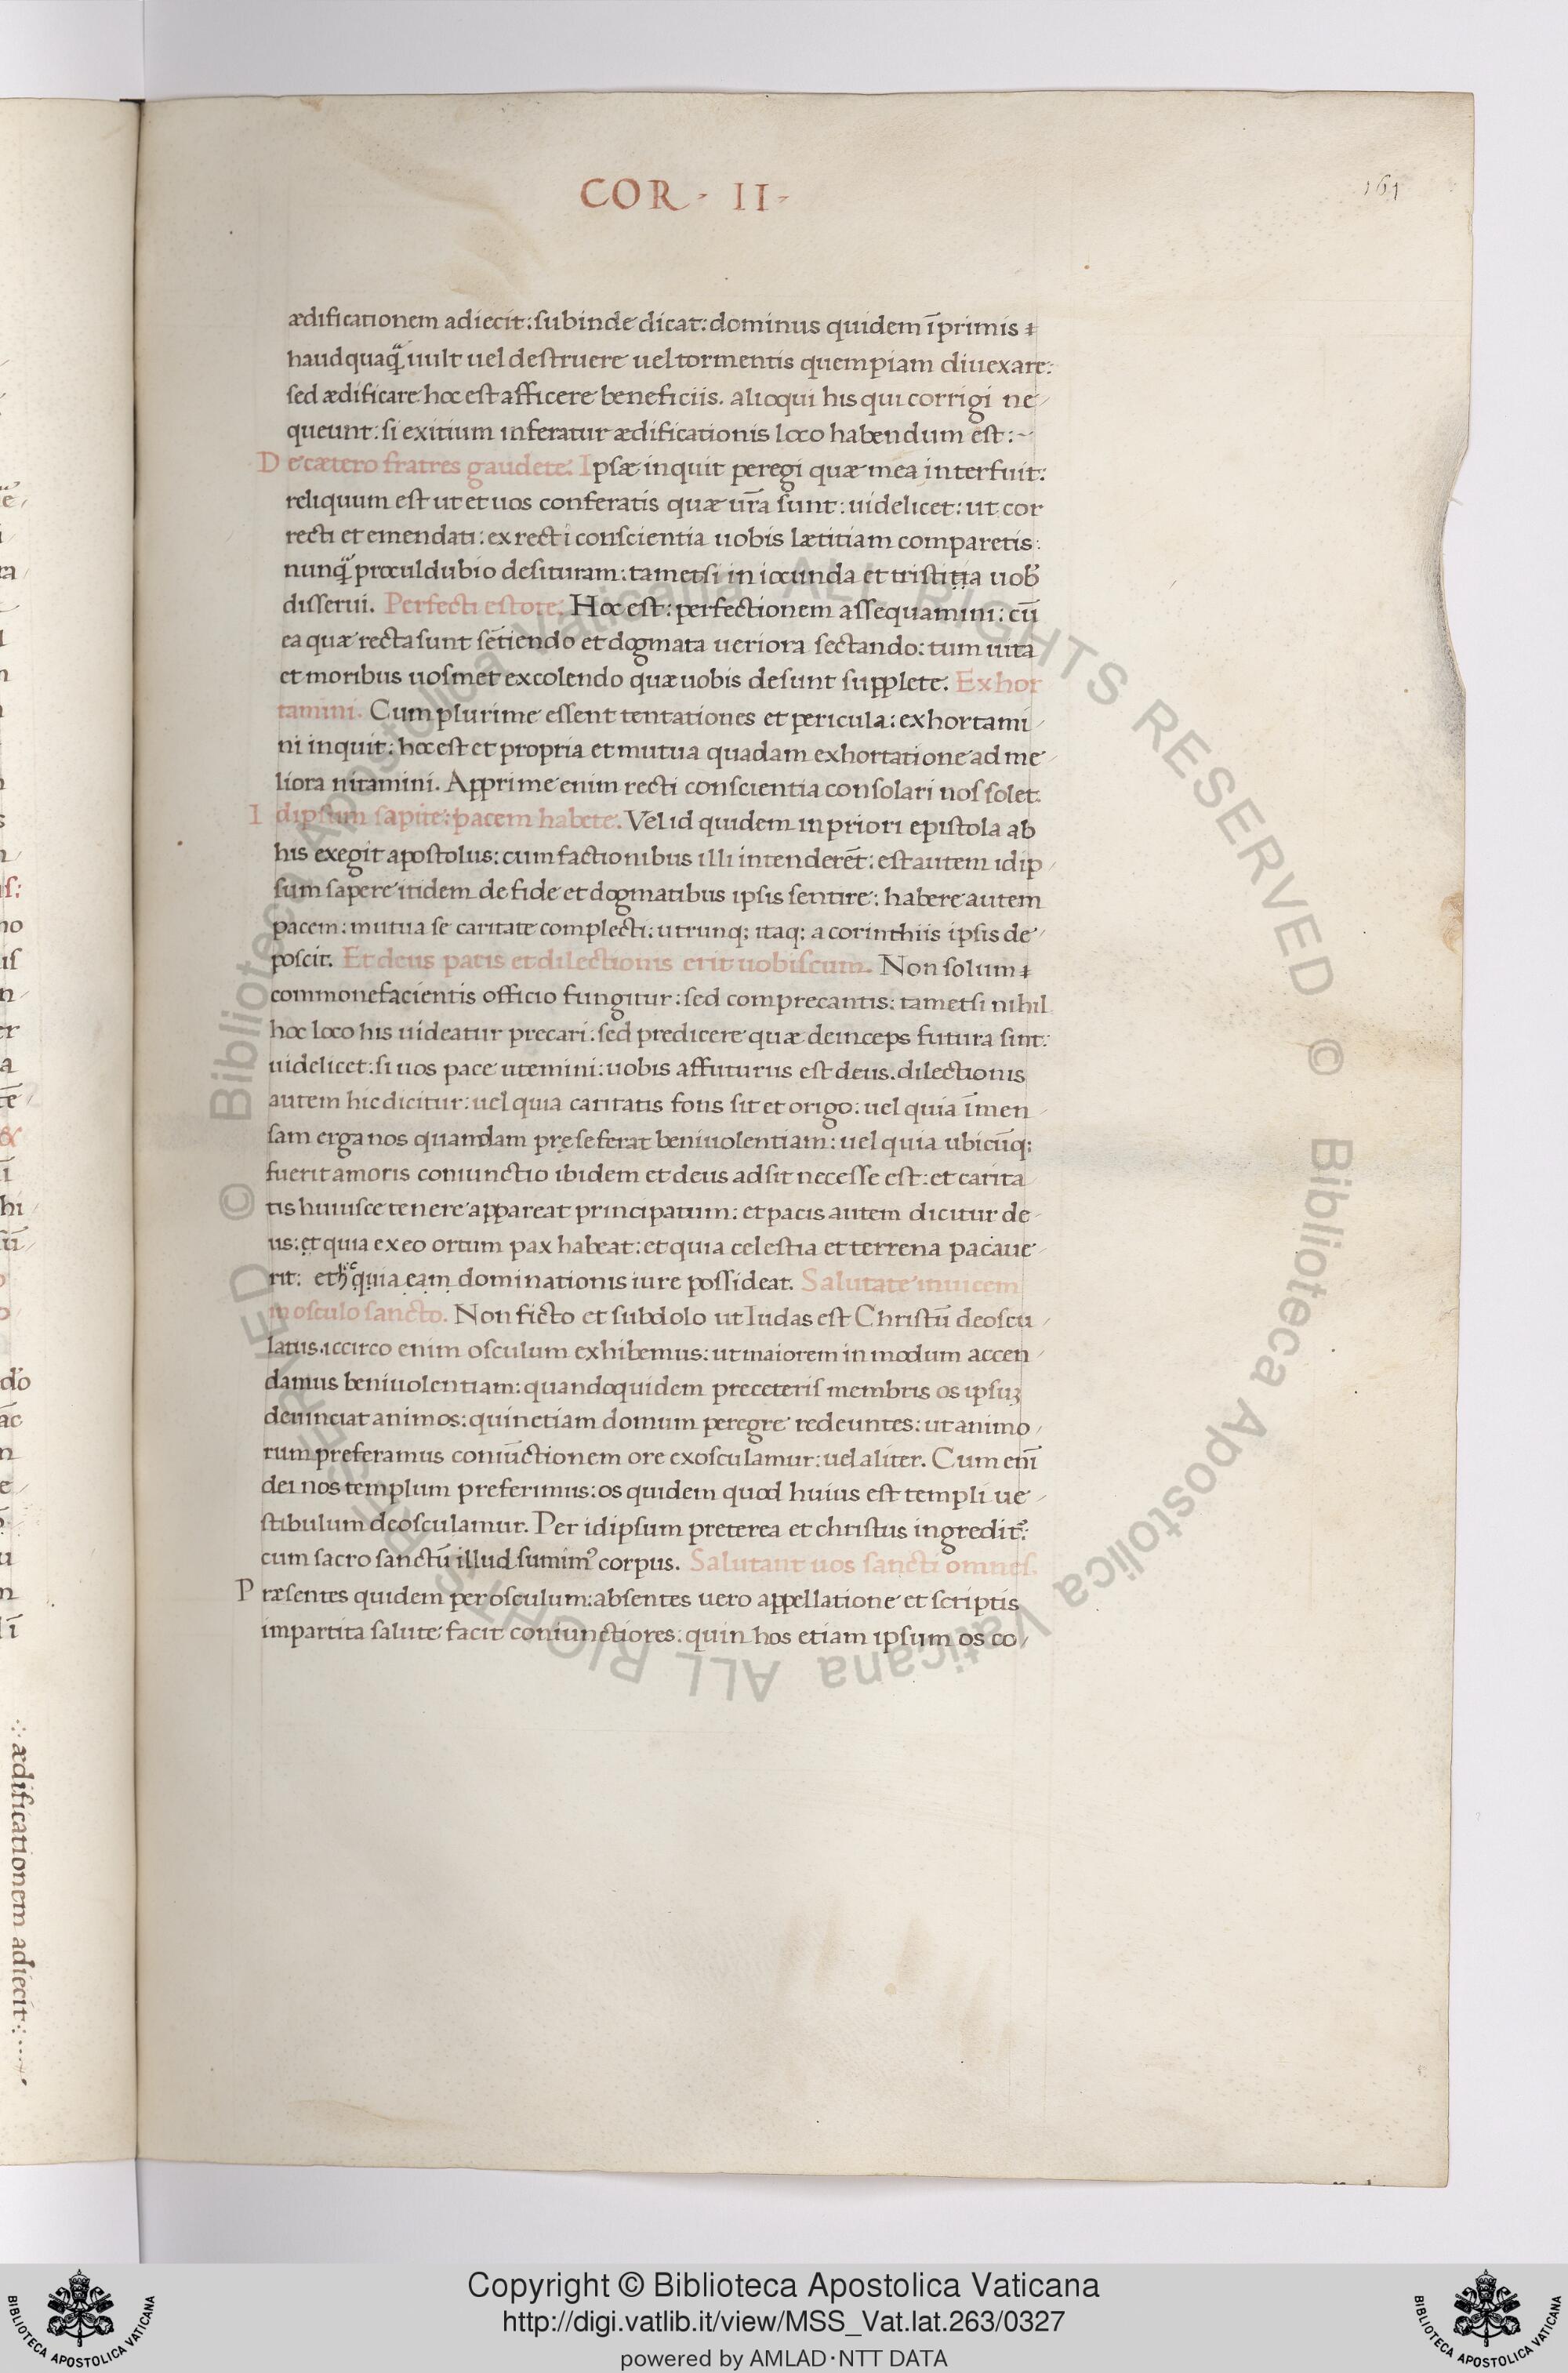 COR · II ·
161
ædificationem adiecit: subinde dicat: dominus quidem ī primis
haud quaq̃ uult uel destruere uel tormentis quempiam diuexare:
sed ædificare hoc est afficere beneficiis. alioqui his qui corrigi ne
queunt: si exitium inferatur ædificationis loco habendum est:~
De cætero fratres gaudete. Ipsæ inquit peregi quæ mea interfuit:
reliquum est ut et uos conferatis quæ ur̄a sunt: uidelicet: ut cor
recti et emendati: ex recti conscientia uobis lætitiam comparetis:
nunq̃ proculdubio desituram: tametsi in iocunda et tristitia uob
disserui. Perfecti estote. Hoc est: perfectionem assequamini: cū
ea quæ recta sunt sētiendo et dogmata ueriora sectando: tum uita
et moribus uosmet excolendo quæ uobis desunt supplete. Exhor
tamini. Cum plurime essent tentationes et pericula: exhortami
ni inquit: hoc est et propria et mutua quadam exhortatione ad me
liora nitamini. Apprime enim recti conscientia consolari nos solet.
Idipsum sapite: pacem habete. Vel id quidem in priori epistola ab
his exegit apostolus: cum factionibus illi intenderēt: est autem idip
sum sapere itidem de fide et dogmatibus ipsis sentire: habere autem
pacem: mutua se caritate complecti: utrunq; itaq; a corinthiis ipsis de
poscit. Et deus pacis et dilectionis erit uobiscum. Non solum
commonefacientis officio fungitur: sed comprecantis: tametsi nihil
hoc loco his uideatur precari: sed predicere quæ deinceps futura sint:
uidelicet: si uos pace utemini: uobis affuturus est deus. dilectionis
autem hic dicitur: uel quia caritatis fons sit et origo: uel quia īmen
sam erga nos quamdam pre se ferat beniuolentiam: uel quia ubicūq;
fuerit amoris coniunctio ibidem et deus adsit necesse est: et carita
tis huiusce tenere appareat principatum: et pacis autem dicitur de
us: et quia ex eo ortum pax habeat: et quia celestia et terrena pacaue
rit: et quia eam dominationis iure possideat. Salutate inuicem
in osculo sancto. Non ficto et subdolo ut Iudas est Christū deoscu
latus. iccirco enim osculum exhibemus: ut maiorem in modum accen
damus beniuolentiam: quandoquidem preceteris membris os ipsuʒ
denunciat animos: quinetiam domum peregre redeuntes: ut animo
rum preferamus coniūctionem ore exosculamur: uel aliter. Cum enī
dei nos templum preferimus: os quidem quod huius est templi ue
stibulum deosculamur. Per idipsum preterea et christus ingredit᷑:
cum sacro sanctū illud sumimꝰ corpus. Salutant uos sancti omnes.
Præsentes quidem per osculum: absentes uero appellatione et scriptis
impartita salute facit coniunctiores. quin hos etiam ipsum os co
ædificationem adiecit:
© Biblioteca Apostolica Vaticana ALL RIGHTS RESERVED © Biblioteca Apostolica Vaticana ALL RIGHTS RESERVED
Copyright © Biblioteca Apostolica Vaticana
http://digi.vatlib.it/view/MSS_Vat.lat.263/0327
powered by AMLAD·NTT DATA
BIBLIOTECA APOSTOLICA VATICANA
BIBLIOTECA APOSTOLICA VATICANA